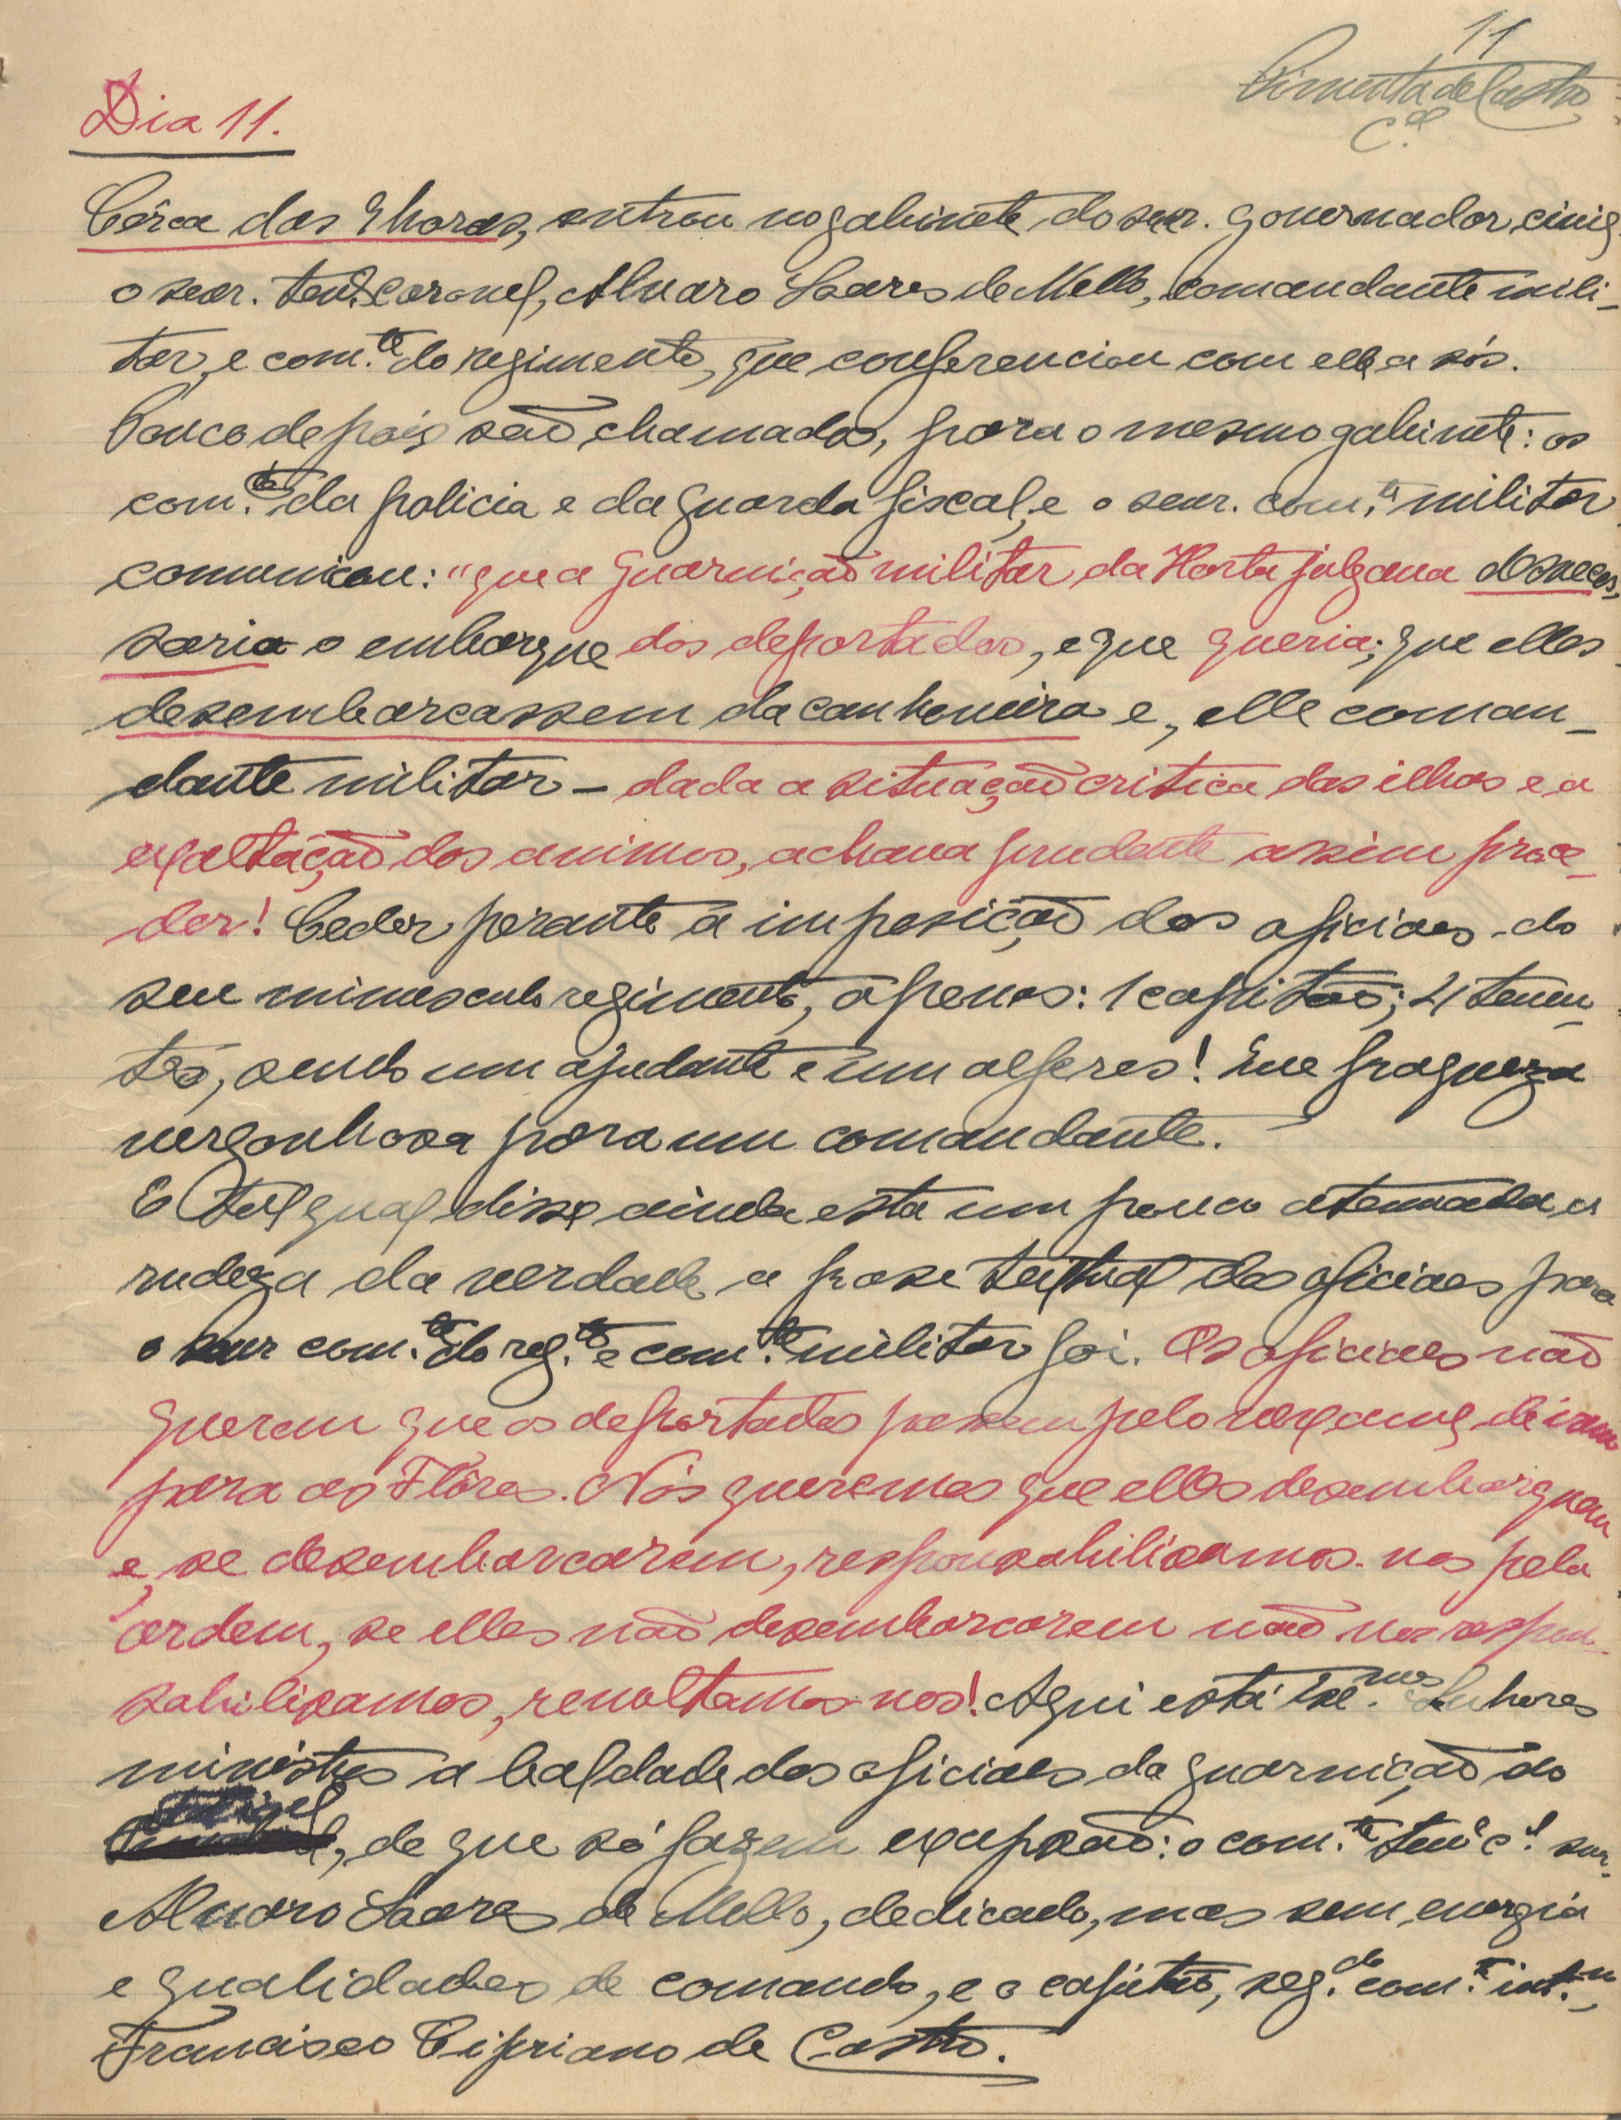 11
Pimenta de Castro
C.el
Dia 11.
Cêrca das 9 horas, entrou no gabinete do snr. governador civil,
o snr. ten.e coronel, Alvaro Soares de Mello, comandante mili-
tar, e com.te do regimento, que conferenciou com elle a sós.
Pouco depois são chamados, para o mesmo gabinete: os
com.tes da policia e da guarda fiscal, e o snr. com.te militar
comunicou: "que a guarnição militar da Horta julgava desneces-
saria o embarque dos deportados, e que queria; que elles
desembarcassem da canhoneira e, elle coman-
dante militar – dada a situação critica das ilhas e a
exaltação dos animos, achava prudente assim proce-
der! Ceder perante a imposição dos oficiaes do
seu minusculo regimento, apenas: 1 capitão; 4 tenen-
tes, sendo um ajudante e um alferes! Que fraqueza
vergonhosa para um comandante.
E tal qual disse ainda esta um pouco atenuada a
rudeza da verdade, a frase textual dos oficiaes para
o snr com.te do reg.to e com.te militar foi. Os oficiaes não
querem que os deportados passem pelo vexame de irem
para as Flôres. Nós queremos que elles desembarquem
e, se desembarcarem, responsabilisamos-nos pela
ordem, se elles não desembarcarem não nos respon-
sabilisamos, revoltamos-nos! Aqui está Ex.mos Senhores
ministros a lealdade dos oficiaes da guarnição do
de que só fazem excepção: o com.te ten.e c.el snr.
Alvaro Soares de Mello, dedicado, mas sem energia
e qualidades de comando, e o capitão, seg.do com.te int.no,
Francisco Cipriano de Castro.